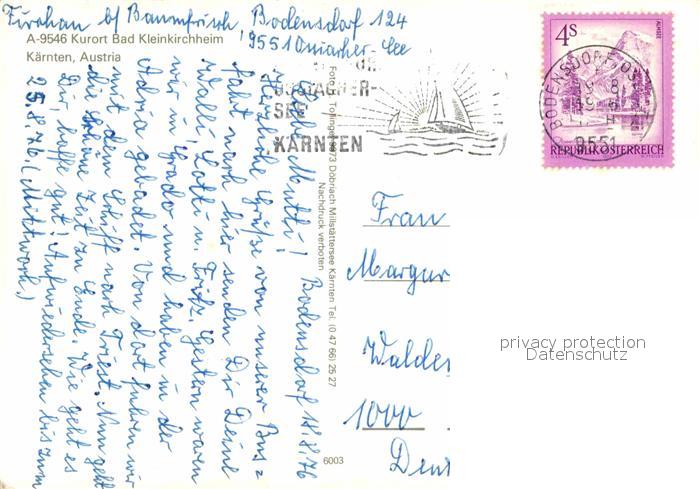 Firohan b/ Baumfrisch, Bodensdorf 124
95510ssiacher-See
A-9546 Kurort Bad Kleinkirchheim
Kärnten, Austria
Liebe Mutti! Bodensdorf 18.8.76
Herzliche Grüße von unserer Bus=
fahrt nach hier senden Dir Deine
Walli, Lotti u. Fritz. Gestern waren
wir in Grado und haben in der
Adria gebadet. Von dort fuhren wir
mit dem Schiff nach Triest. Nun geht
die schöne Zeit zu Ende. Wie geht es
Dir, hoffe gut! Aufwiedersehen bis zum
25.8.76 (Mittwoch)
Döbriach Millstättersee Kärnten Tel. (0 47 66) 25 27
Nachdruck verboten
6003
OSSIACHER-
SEE
KÄRNTEN
4S
ALMSEE
BODENSDORF
9551
REPUBLIK ÖSTERREICH
Frau
Margar
Waldes
1000
Deut
privacy protection
Datenschutz